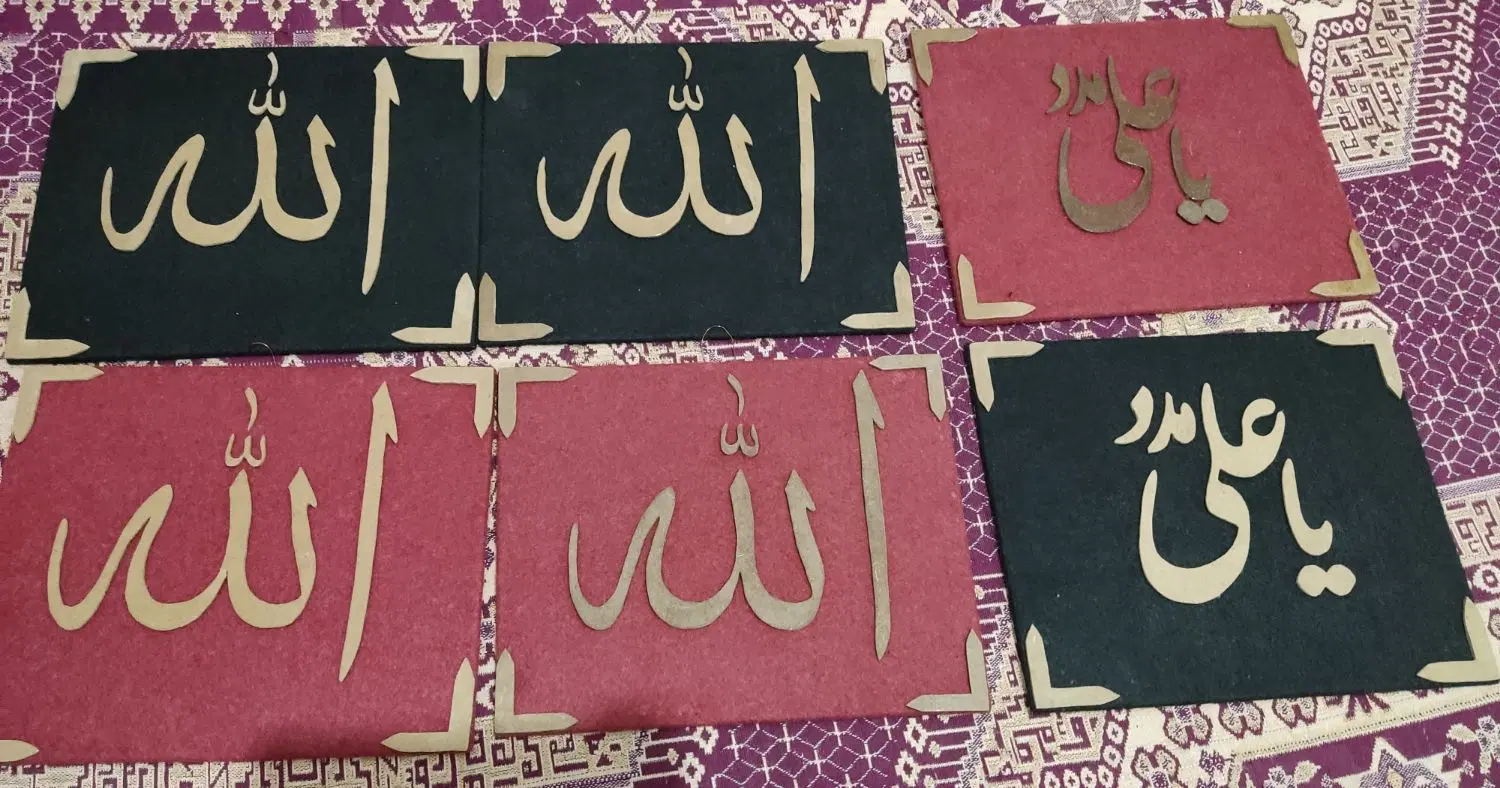 الله
الله
یا علی مدد
الله
الله
یا علی مدد